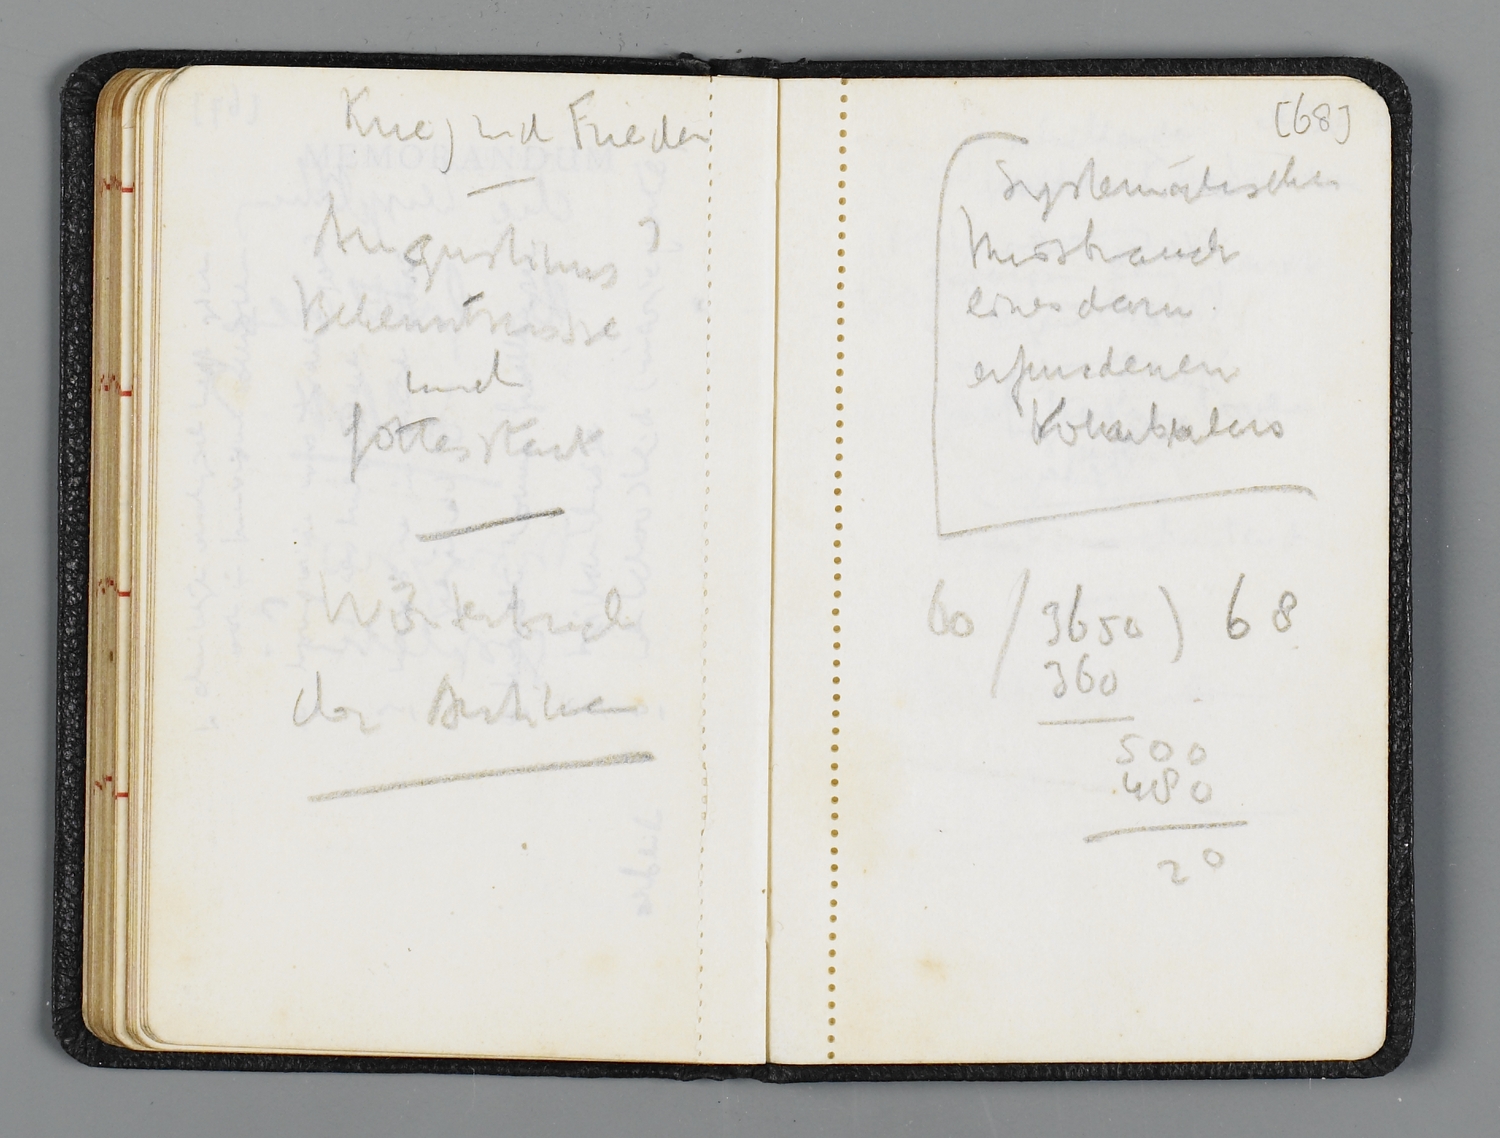 Krieg und Frieden
Augustinus
Bekenntnisse
und
Gottesstaat
Wörterbuch
der Antike
[68]
Systematischer
Missbrauch
eines dazu
erfundenen
Vokabulars
60 / 3650 ) 68
360
500
480
20